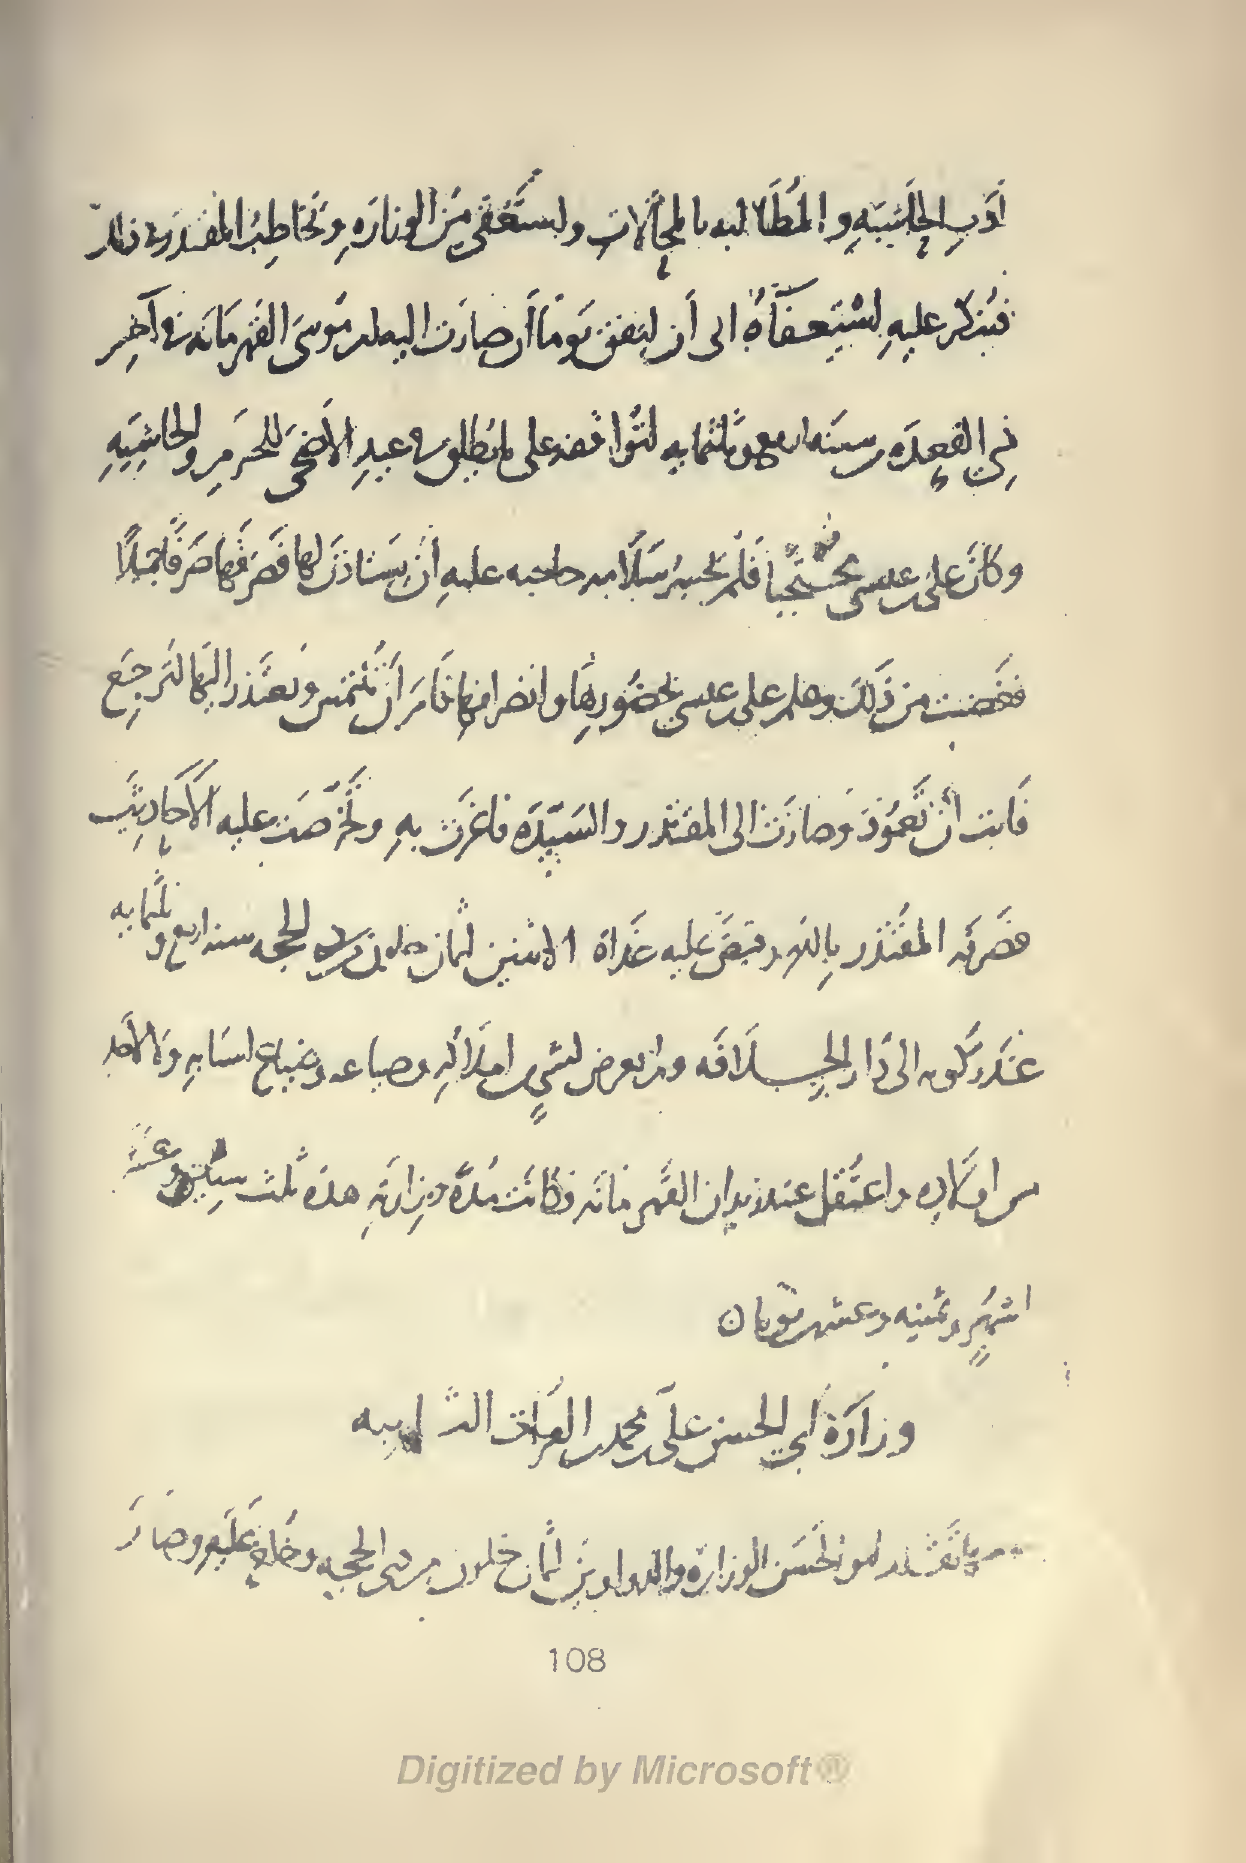 أدب الحاشية والمطالبة بالمحالات ويستعفي من الوزارة ويخاطب المقتدر في ذلك
فينكر عليه استعفآءه الى أن اتفق يوماً أن صارت اليه ام موسى القهرمانه في آخر
ذي القعدة من سنه اربع وثلثمايه لتوافقه على ما يطلق في عيد الأضحى للحرم والحاشية
وكان علي بن عيسى محتجباً فلم يجسر سلامه حاجبه عليه أن يستأذن لها فصرفها صرفاً جميلاً
فغضبت من ذلك وعلم علي بن عيسى بحضورها وانصرافها فأمر أن تلتمس ويعتذر اليها لترجع
فأبت أن تعود وصارت الى المقتدر والسيدة فأغرت به وتخرصت عليه الأحاديث
فصرفه المقتدر بالله وقبض عليه غداة الاثنين لثمان خلون من ذي الحجه سنه اربع وثلثمايه
عند ركوبه الى دار الخلافه ولم يعرض لشيء من املاكه وضياعه وضياع اسبابه ولا لأحد
من اولاده واعتقل عند زيدان القهرمانه فكانت مدة وزارته هذه ثلث سنين وعشرة
اشهر وثمنيه وعشرين يومان
وزارة أبي الحسن علي بن محمد بن الفرات الثانيه
تقلد ابو الحسن الوزارة والدواوين لثمان خلون من ذي الحجه وخلع عليه وصار
108
Digitized by Microsoft®